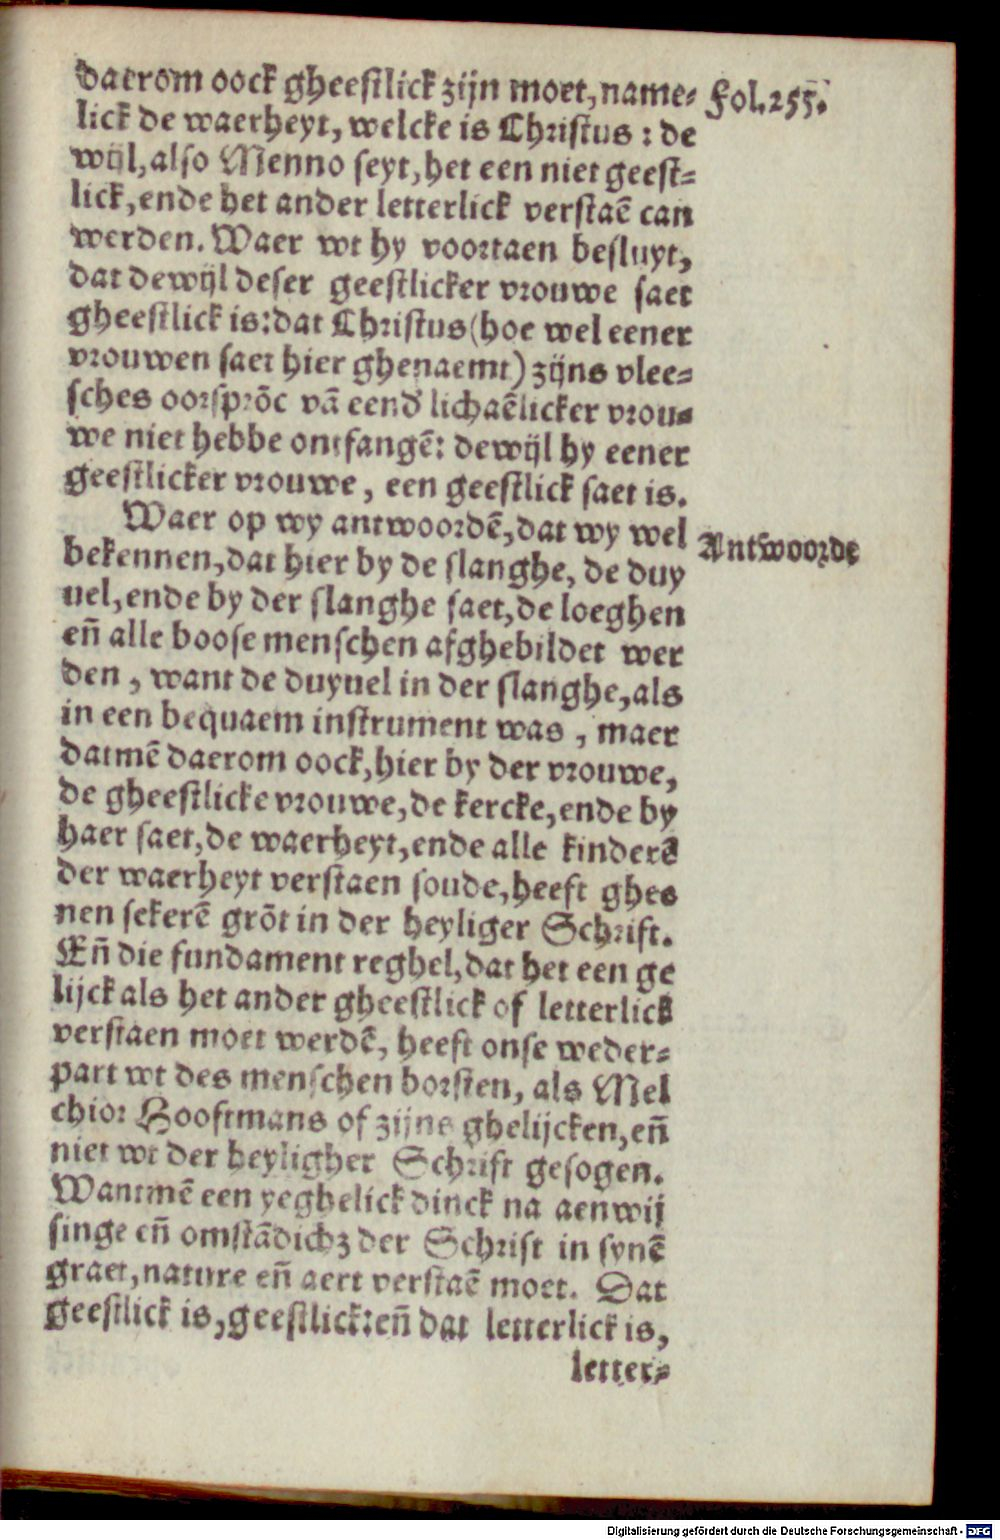 daerom oock gheestlick zijn moet, name-
Fol. 255.
lick de waerheyt, welcke is Christus: de
wijl, also Menno seyt, het een niet geest-
lick, ende het ander letterlick verstaē can
werden. Waer wt hy voortaen besluyt,
dat dewijl deser geestlicker vrouwe saet
gheestlick is: dat Christus (hoe wel eener
vrouwen saet hier ghenaemt) zijns vlee-
sches oorsprōc vā eend lichaēlicker vrou-
we niet hebbe ontfangē: dewijl hy eener
geestlicker vrouwe, een geestlick saet is.
Waer op wy antwoordē, dat wy wel
Antwoorde
bekennen, dat hier by de slanghe, de duy
uel, ende by der slanghe saet, de loeghen
eñ alle boose menschen afghebildet wer
den, want de duyuel in der slanghe, als
in een bequaem instrument was, maer
datmē daerom oock, hier by der vrouwe,
de gheestlicke vrouwe, de kercke, ende by
haer saet, de waerheyt, ende alle kinderē
der waerheyt verstaen soude, heeft ghee
nen sekerē grōt in der heyliger Schrift.
Eñ die fundament reghel, dat het een ge
lijck als het ander gheestlick of letterlick
verstaen moet werdē, heeft onse weder-
part wt des menschen borsten, als Mel
chior Hooftmans of zijns ghelijcken, eñ
niet wt der heyligher Schrift gesogen.
Wantmē een yeghelick dinck na aenwij
singe eñ omstādichz der Schrift in synē
graet, nature eñ aert verstaē moet. Dat
geestlick is, geestlick: eñ dat letterlick is,
letter-
Digitalisierung gefördert durch die Deutsche Forschungsgemeinschaft - DFG